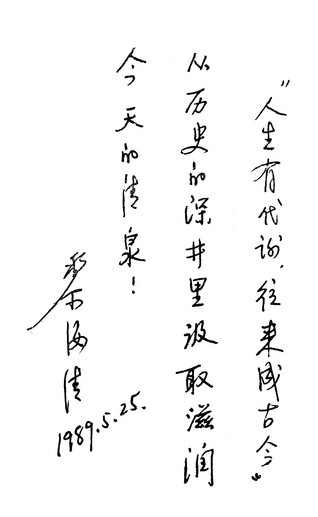 “人生有代谢,往来成古今”
从历史的深井里汲取滋润
今天的清泉!
海清
1989.5.25.